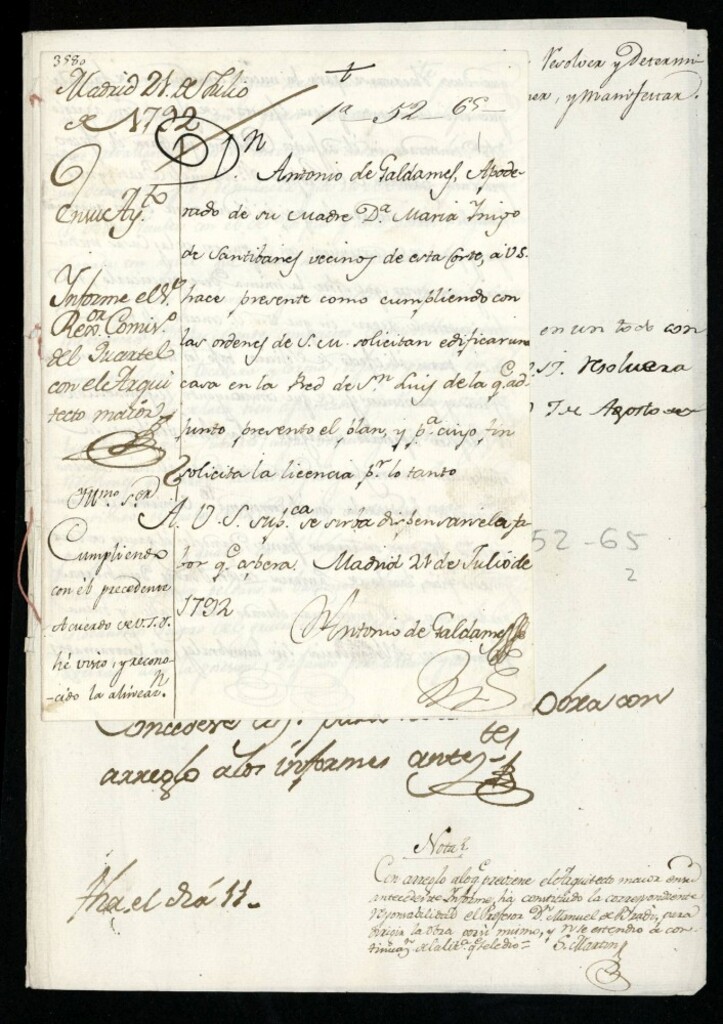 358º
Madrid 21 de Julio
de 1792
En su Ay.to
Informe el S.r
Re.or Comis.o
del Quartel
con el Arqui
tecto maior
Ill.mo S.or
Cumpliendo
con el precedente
Acuerdo de V.S.Y.
hé visto, y recono-
-cido la alinean.n
1ª - 52 - 65
D.n Antonio de Galdames, Apode-
rado de su Madre D.ª Maria Inigo
de Santibanes vecinos de esta Corte, a VS.
hace presente como cumpliendo con
las ordenes de S.M. solicitan edificar una
casa en la Red de S.n Luis de la q.e ad
junto, presento el plan, y p.ª cuyo fin
solicita la licencia p.r lo tanto
A V.S. sup.ca se sirba dispensarsela fa
bor q.e
Madrid 21 de Julio de
1792
Antonio de Galdames
Resolver y Determi-
ner, y Manifestar.
en un todo con
resolvera
7 de Agosto
52-65
2
Obra con
arreglo a los informes ante.tes
fha el dia 11.
Nota
Con arreglo a lo q.e previene el Arquitecto maior en su
antecedente Informe, ha constituido la correspondiente
responsabilidad el Profesor D.n Manuel de Prado, para
dirigir la obra por si mismo, y
S. Martin